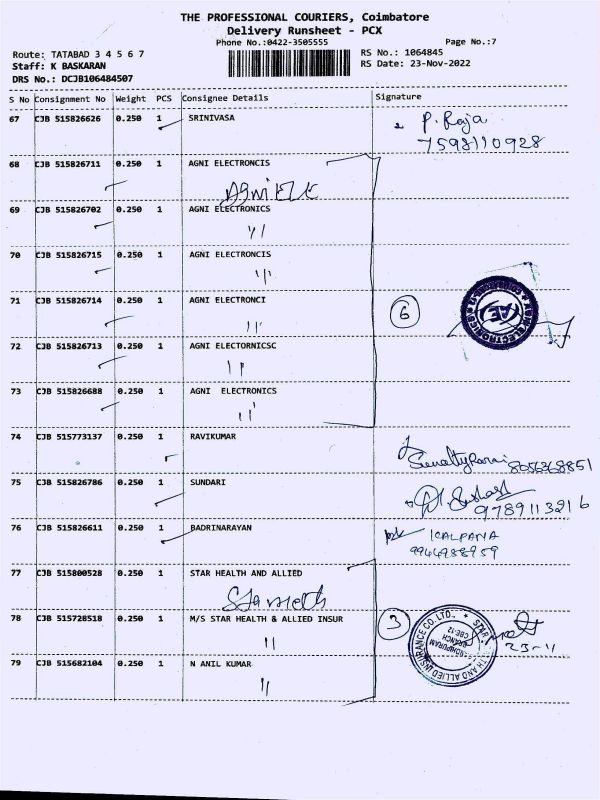 THE PROFESSIONAL COURIERS, Coimbatore
Delivery Runsheet - PCX
Phone No.:0422-3505555
Page No.:7
Route: TATABAD 3 4 5 6 7
RS No.: 1064845
Staff: K BASKARAN
RS Date: 23-Nov-2022
DRS No.: DCJB106484507
S No Consignment No Weight PCS Consignee Details Signature
67 CJB 515826626 0.250 1 SRINIVASA P. Raja
7598110928
68 CJB 515826711 0.250 1 AGNI ELECTRONCIS
Agni ELE
69 CJB 515826702 0.250 1 AGNI ELECTRONICS
70 CJB 515826715 0.250 1 AGNI ELECTRONCIS
71 CJB 515826714 0.250 1 AGNI ELECTRONCI
6
72 CJB 515826713 0.250 1 AGNI ELECTORNICSC
73 CJB 515826688 0.250 1 AGNI ELECTRONICS
74 CJB 515773137 0.250 1 RAVIKUMAR
75 CJB 515826786 0.250 1 SUNDARI
9789113216
76 CJB 515826611 0.250 1 BADRINARAYAN KALPANA
9944988959
77 CJB 515800528 0.250 1 STAR HEALTH AND ALLIED
78 CJB 515728518 0.250 1 M/S STAR HEALTH & ALLIED INSUR
3
23-11
79 CJB 515682104 0.250 1 N ANIL KUMAR